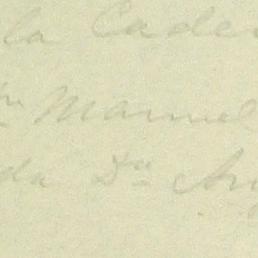 la Cade
Manuel
da Dn. An